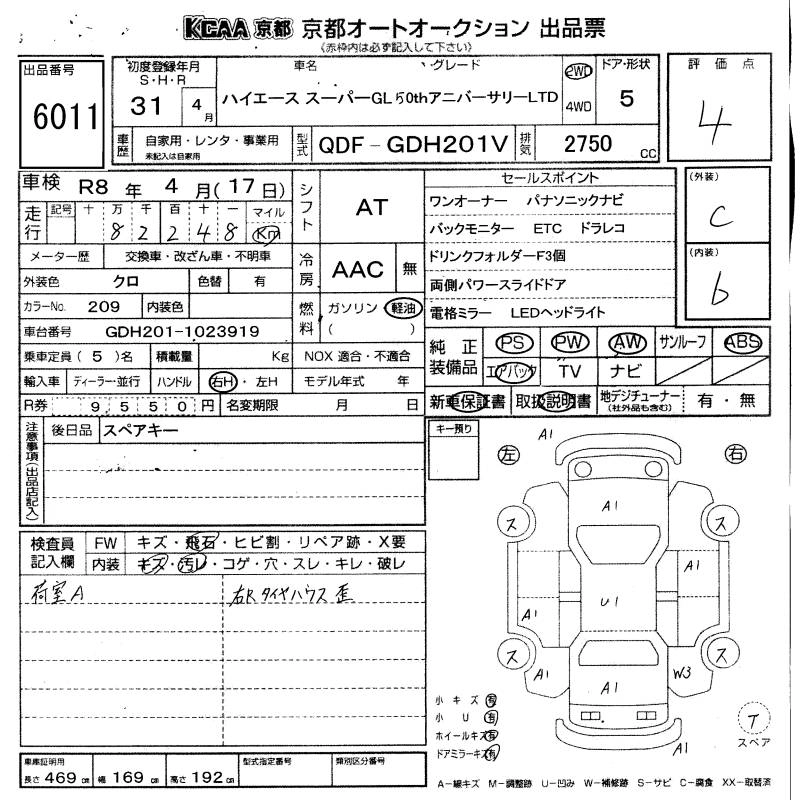 KCAA 京都 京都オートオークション 出品票
(赤枠内は必ず記入して下さい)
出品番号
6011
初度登録年月
S・H・R
31 4月
車名 グレード
ハイエース スーパーGL50thアニバーサリーLTD
2WD
4WD
ドア・形状
5
評価点
4
車歴
自家用・レンタ・事業用
未記入は自家用
型式
QDF-GDH201V
排気
2750 CC
車検 R8年 4月(17日)
走行
記号 十 万 千 百 十 一 マイル
8 2 2 4 8 Km
メーター歴 交換車・改ざん車・不明車
外装色 クロ 色替 有
カラーNo. 209 内装色
車台番号 GDH201-1023919
乗車定員(5)名 積載量 Kg
輸入車 ディーラー・並行 ハンドル 右H・左H
R券 9550円 名変期限 月 日
シフト AT
冷房 AAC 無
燃料 ガソリン 軽油
( )
NOX 適合・不適合
モデル年式 年
セールスポイント
ワンオーナー パナソニックナビ
バックモニター ETC ドラレコ
ドリンクフォルダーF3個
両側パワースライドドア
電格ミラー LEDヘッドライト
(外装)
C
(内装)
b
純正装備品
PS PW AW サンルーフ ABS
エアバック TV ナビ
新車保証書 取扱説明書 地デジチューナー(社外品も含む) 有・無
注意事項(出品店記入)
後日品 スペアキー
キー預り
検査員記入欄
FW キズ・飛石・ヒビ割・リペア跡・X要
内装 キズ・汚レ・コゲ・穴・スレ・キレ・破レ
荷室A
右Rタイヤハウス歪
左 右
A1
A1
ス ス
A1
U1
A1
ス ス
A1 W3
A1
A1
小キズ 有
小U 有
ホイールキズ 有
ドアミラーキズ 有
T
スペア
車庫証明用
長さ 469 cm 幅 169 cm 高さ 192 cm
型式指定番号
類別区分番号
A-線キズ M-調整跡 U-凹み W-補修跡 S-サビ C-腐食 XX-取替済